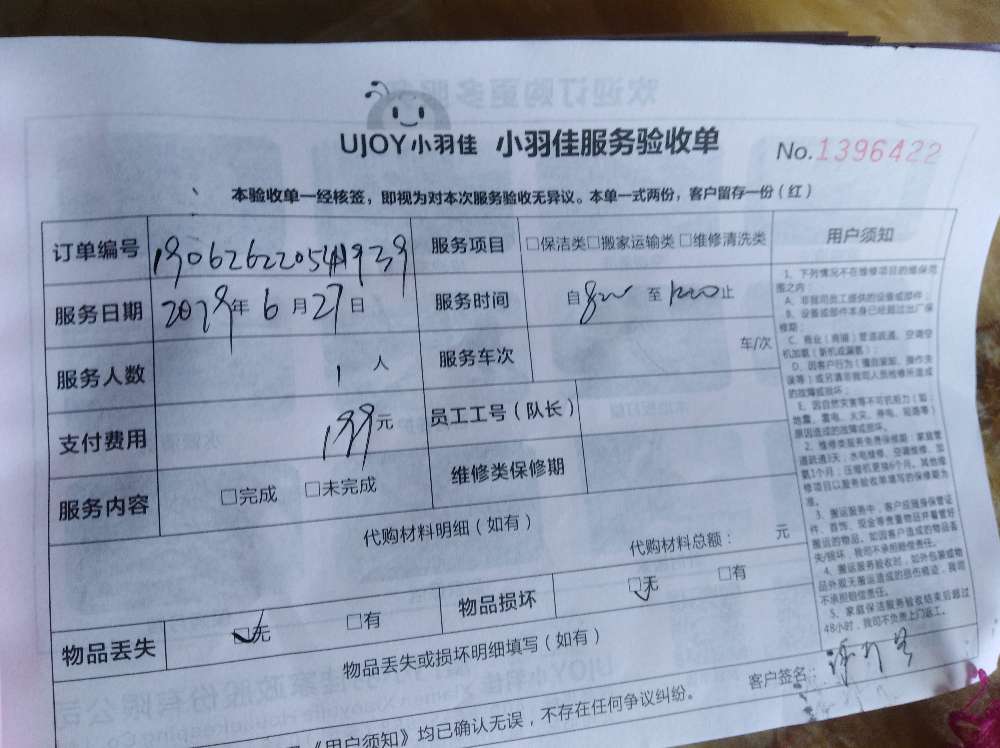 UJOY小羽佳 小羽佳服务验收单
No.1396422
本验收单一经核签，即视为对本次服务验收无异议。本单一式两份，客户留存一份（红）
订单编号
服务项目 □保洁类□搬家运输类□维修清洗类
服务日期 2019年6月27日
服务时间 自800至1200止
服务人数 1人
服务车次 车/次
支付费用 199元
员工工号（队长）
服务内容 □完成 □未完成
维修类保修期
代购材料明细（如有）
代购材料总额： 元
物品丢失 □无 □有
物品损坏 □无 □有
物品丢失或损坏明细填写（如有）
客户签名：
《用户须知》均已确认无误，不存在任何争议纠纷。
用户须知
1、下列情况不在维修项目的维保范
围之内：
A、非我司员工提供的设备或部件；
B、设备或部件本身已经超过出厂保
修期；
C、商业（商铺）管道疏通、空调空
机加氨（新机或漏氨）；
D、因客户行为（擅自装卸、操作失
误等）或另请非我司人员检修所造成
的故障或损坏；
E、因自然灾害等不可抗原力（如：
地震、雷电、火灾、停电、短路等）
原因造成的故障或损坏。
2、维修类服务免费保修期：家庭管
道疏通3天，水电维修、空调维修、加
氨1个月；压缩机更换6个月。其他维
修项目以服务验收单填写的保修期为
准。
3、搬运服务中，客户应随身保管证
件、首饰、现金等贵重物品并看管好
搬运的物品。如因客户造成的物品丢
失/损坏，我司不承担赔偿责任。
4、搬运服务验收时，如外包装或物
品外观无搬运造成的损伤痕迹，我司
不承担赔偿责任。
5、家庭保洁服务验收结束后超过
48小时，我司不负责上门返工。